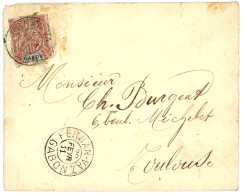 GABON
Monsieur
Ch. Burgeat
6, boul. Michelet
Toulouse
FERNAN-VAZ
FEVR
11
GABON